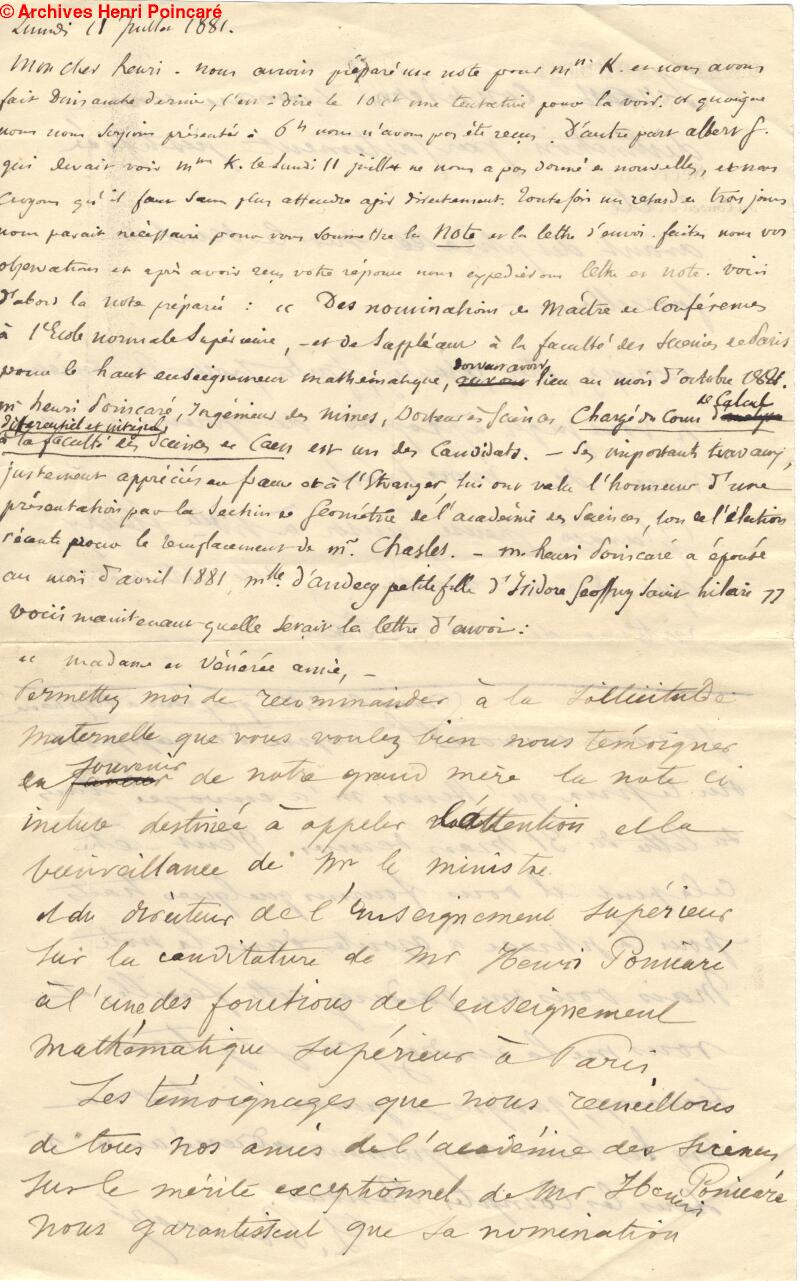 © Archives Henri Poincaré
Lundi 11 Juillet 1881.
Mon cher henri. nous avions préparé une note pour Mme K. et nous avons
fait Dimanche dernier, c'est à dire le 10 ct une tentative pour la voir. or quoique
nous nous soyions présentés à 6h nous n'avons pas été reçus. D'autre part albert G.
qui devait voir Mme K. le Lundi 11 juillet ne nous a pas donné de nouvelles, et nous
croyons qu'il faut sans plus attendre agir directement. Toutefois un retard de trois jours
nous parait nécessaire pour vous soumettre la Note et la lettre d'envoi. faites nous vos
observations et après avoir reçu votre réponse nous expédierons lettre et note. voici
d'abord la note préparée : " Des nominations de Maître de Conférences
à l'Ecole normale Supérieure, - et de Suppléant à la faculté des Sciences de Paris
pour le haut enseignement mathématique, doivent avoir lieu au mois d'octobre 1881.
Mr henri Poincaré, Ingénieur des mines, Docteur ès Sciences Chargé du Cours de Calcul
différentiel et intégral
à la faculté des Sciences de Caen est un des Candidats. - Ses importants travaux,
justement appréciés en france et à l'Etranger, lui ont valu l'honneur d'une
présentation par la Section de Géométrie de l'académie des Sciences, lors de l'élection
récente pour le remplacement de Mr. Chasles. - Mr henri Poincaré a épousé
au mois d'avril 1881, Mlle d'andecy petite fille d'Isidore Geoffroy Saint hilaire "
voici maintenant quelle serait la lettre d'envoi :
" Madame et Vénérée amie, -
Permettez moi de recommander à la Sollicitude
maternelle que vous voulez bien nous témoigner
en souvenir de notre grand mère la note ci
incluse destinée à appeler l'attention et la
bienveillance de Mr le ministre
et du directeur de l'Enseignement Supérieur
sur la canditature de Mr Henri Poincaré
à l'une des fonctions de l'enseignement
mathématique supérieur à Paris
Les témoignages que nous recueillons
de tous nos amis de l'académie des Sciences
sur le mérite exceptionnel de Mr Henri Poincaré
nous garantissent que sa nomination